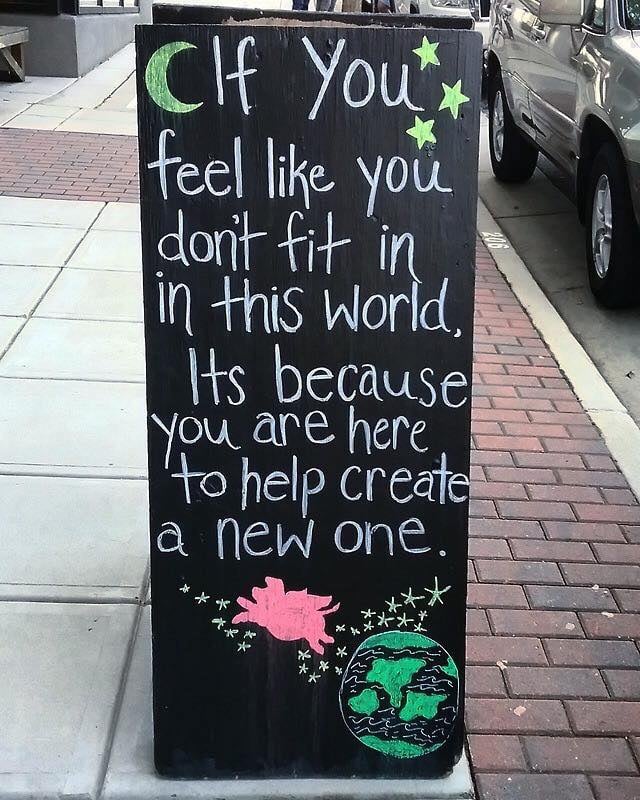 If You
feel like you
don't fit in
in this world,
Its because
you are here
to help create
a new one.